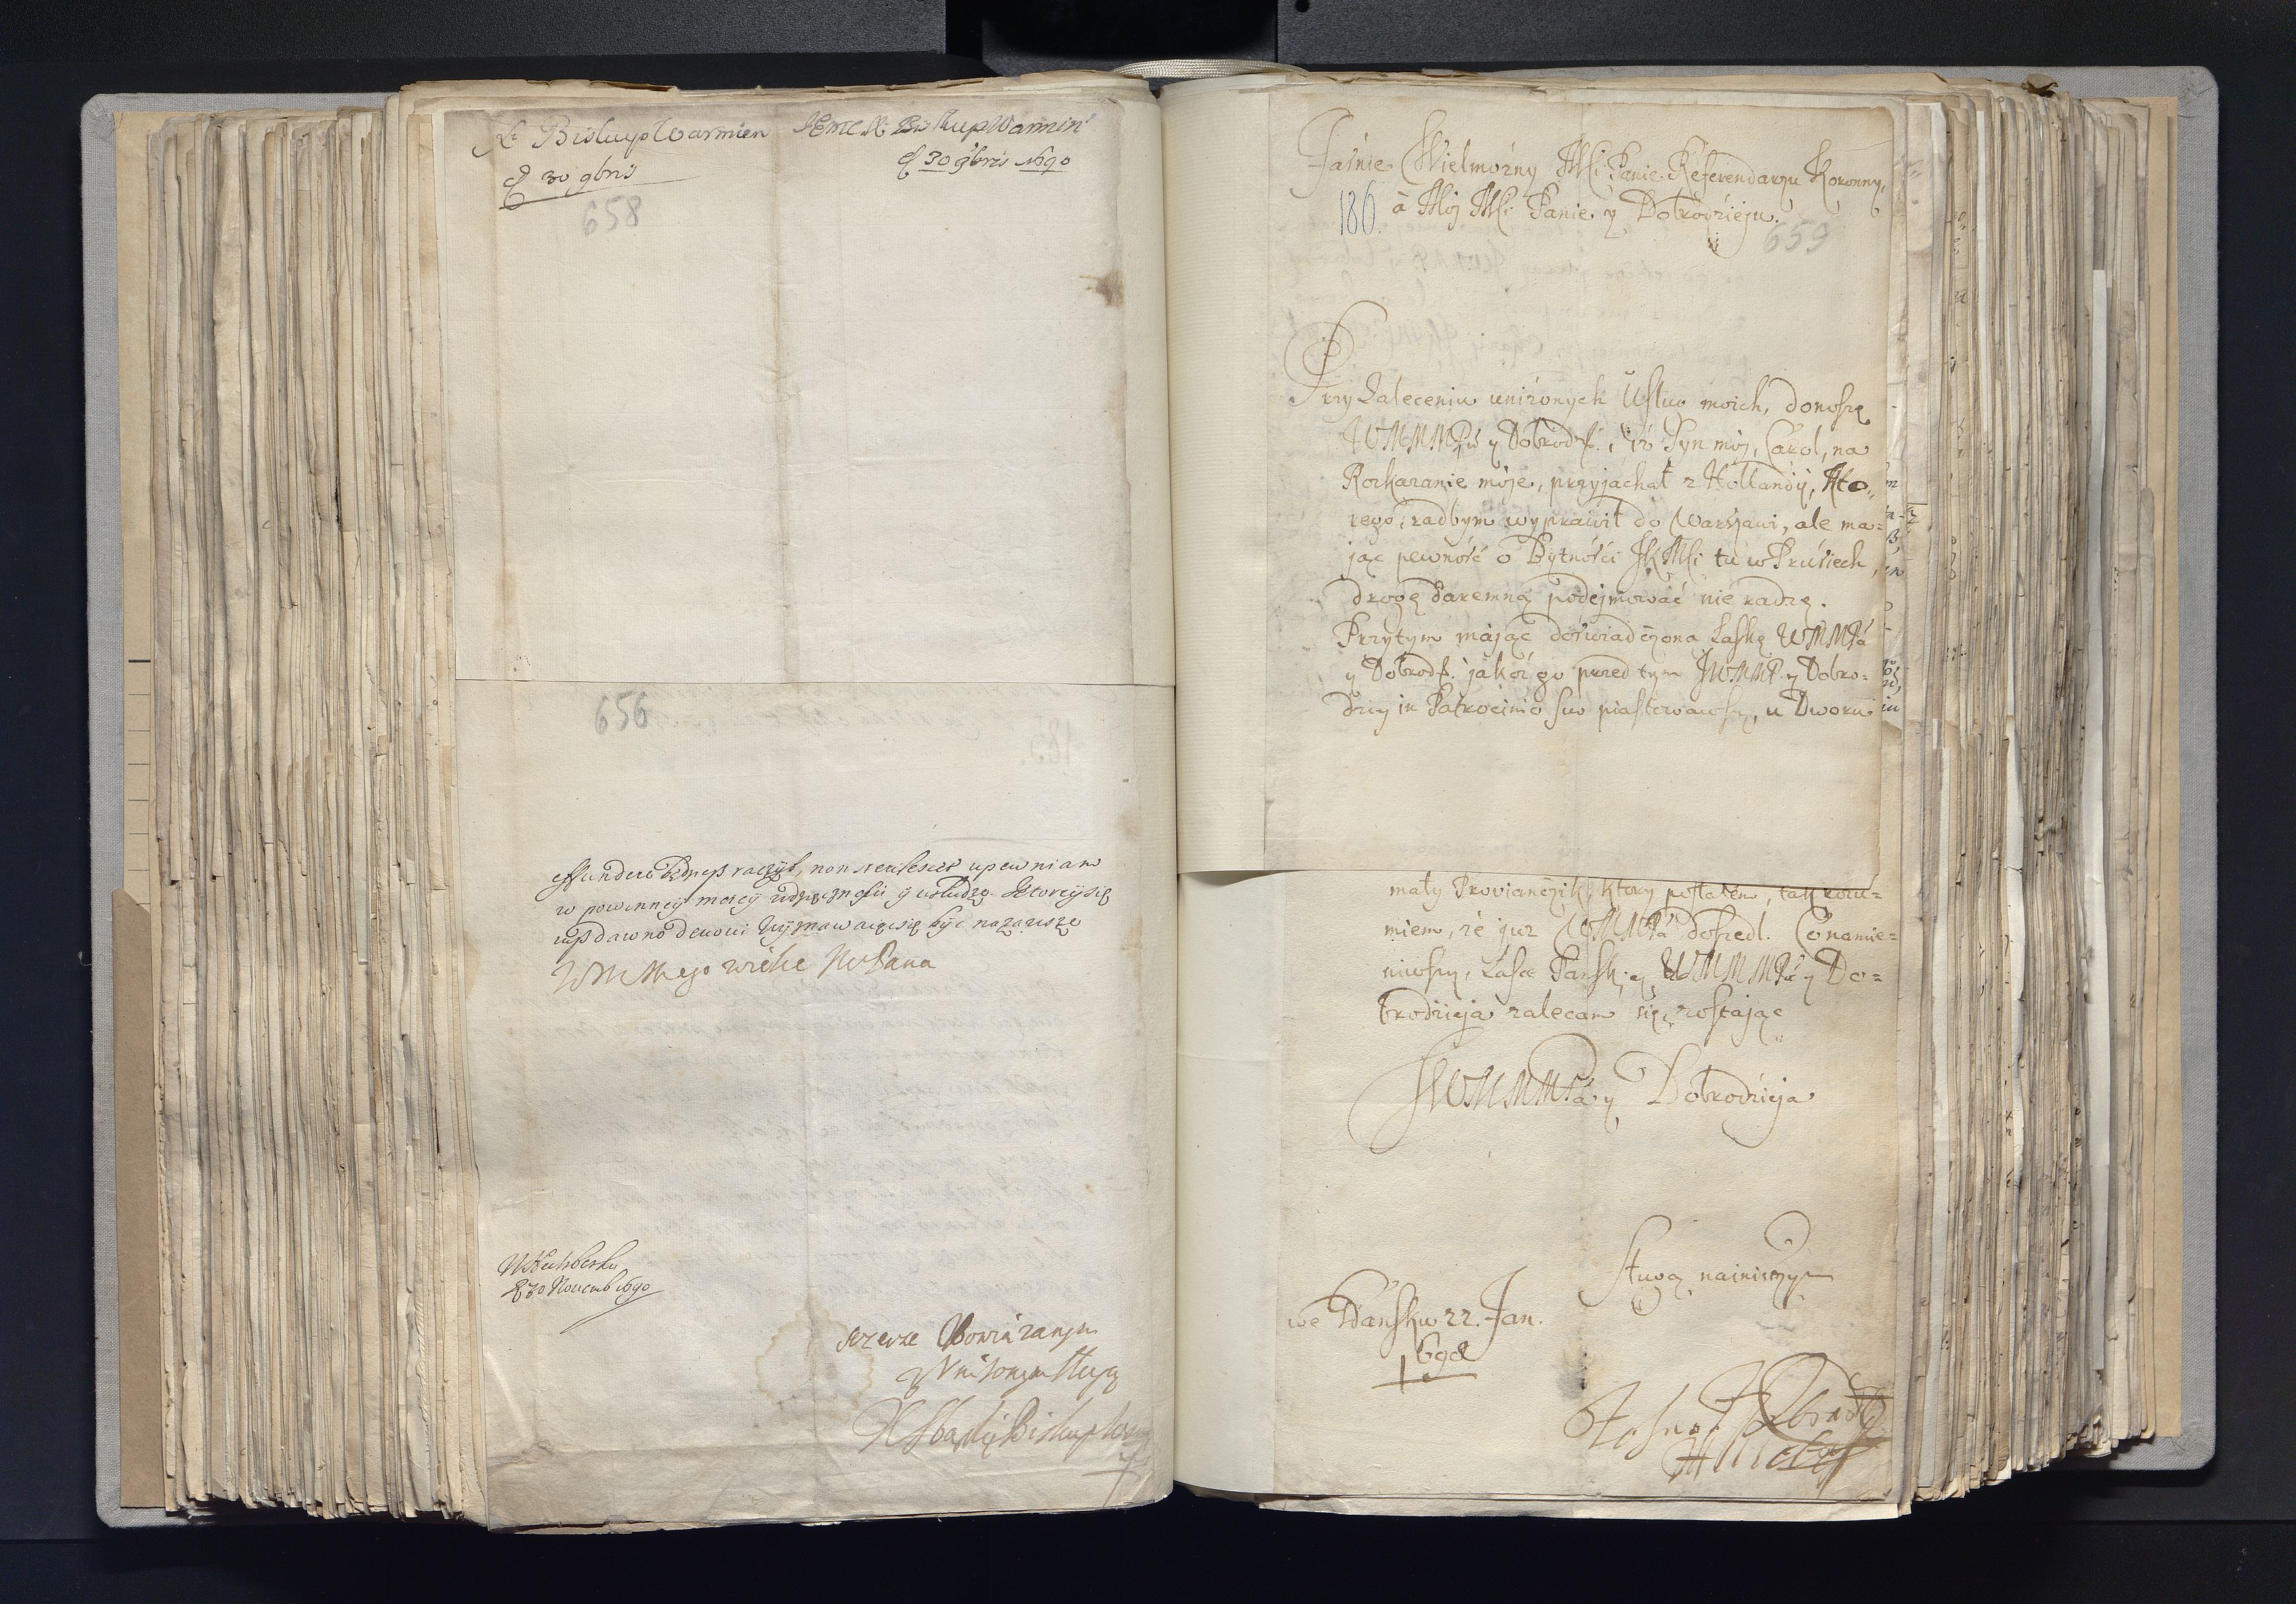 X. Biskup Warmien
d 30 9bris
JEmc X. Biskup Warmin
d 30 9bris 1690
658
656
effundere raczył, non upewniam
w powinney moiey y usłudze ktorey się
dawno być na zawsze
WM Mego wielce M Pana
d 30 Novemb 1690
szczerze Obowiązanym
y Uniżonym sługą
Biskup
Jaśnie Wielmożny Mści Panie Referendarzu Koronny,
186. à Mój Mści Panie y Dobrodzieju.
659
Przy Zaleceniu uniżonych Usług moich, donoszę
JWMMMPu y Dobrodz. iż Syn mój, Carol, na
Rozkazanie moje, przyjachał z Hollandÿ, Kto„
rego, radbym wyprawił do Warszawi, ale ma=
jąc pewność o Bytnośći JKMści tu w Prusiech,
drogę daremną podejmować nie radzę.
Przytym mając doświadczoną Łaskę WMMPa
y Dobrodz. jakoż go przed tym JWMMP. y Dobro=
dziey in Patrocinio suo piastowawszy, u Dworu
mały Prowianczik, ktory posłałem, tak rozu=
miem, że juz WMMPa doszedł. Co namie=
niwszy, Łasce Pańskiey WMMMPa y Do=
brodzieja zalecam się, zostając
JWMMMPa y Dobrodzieja
Sługą nainiszym
we Gdańsku 22. Jan.
169